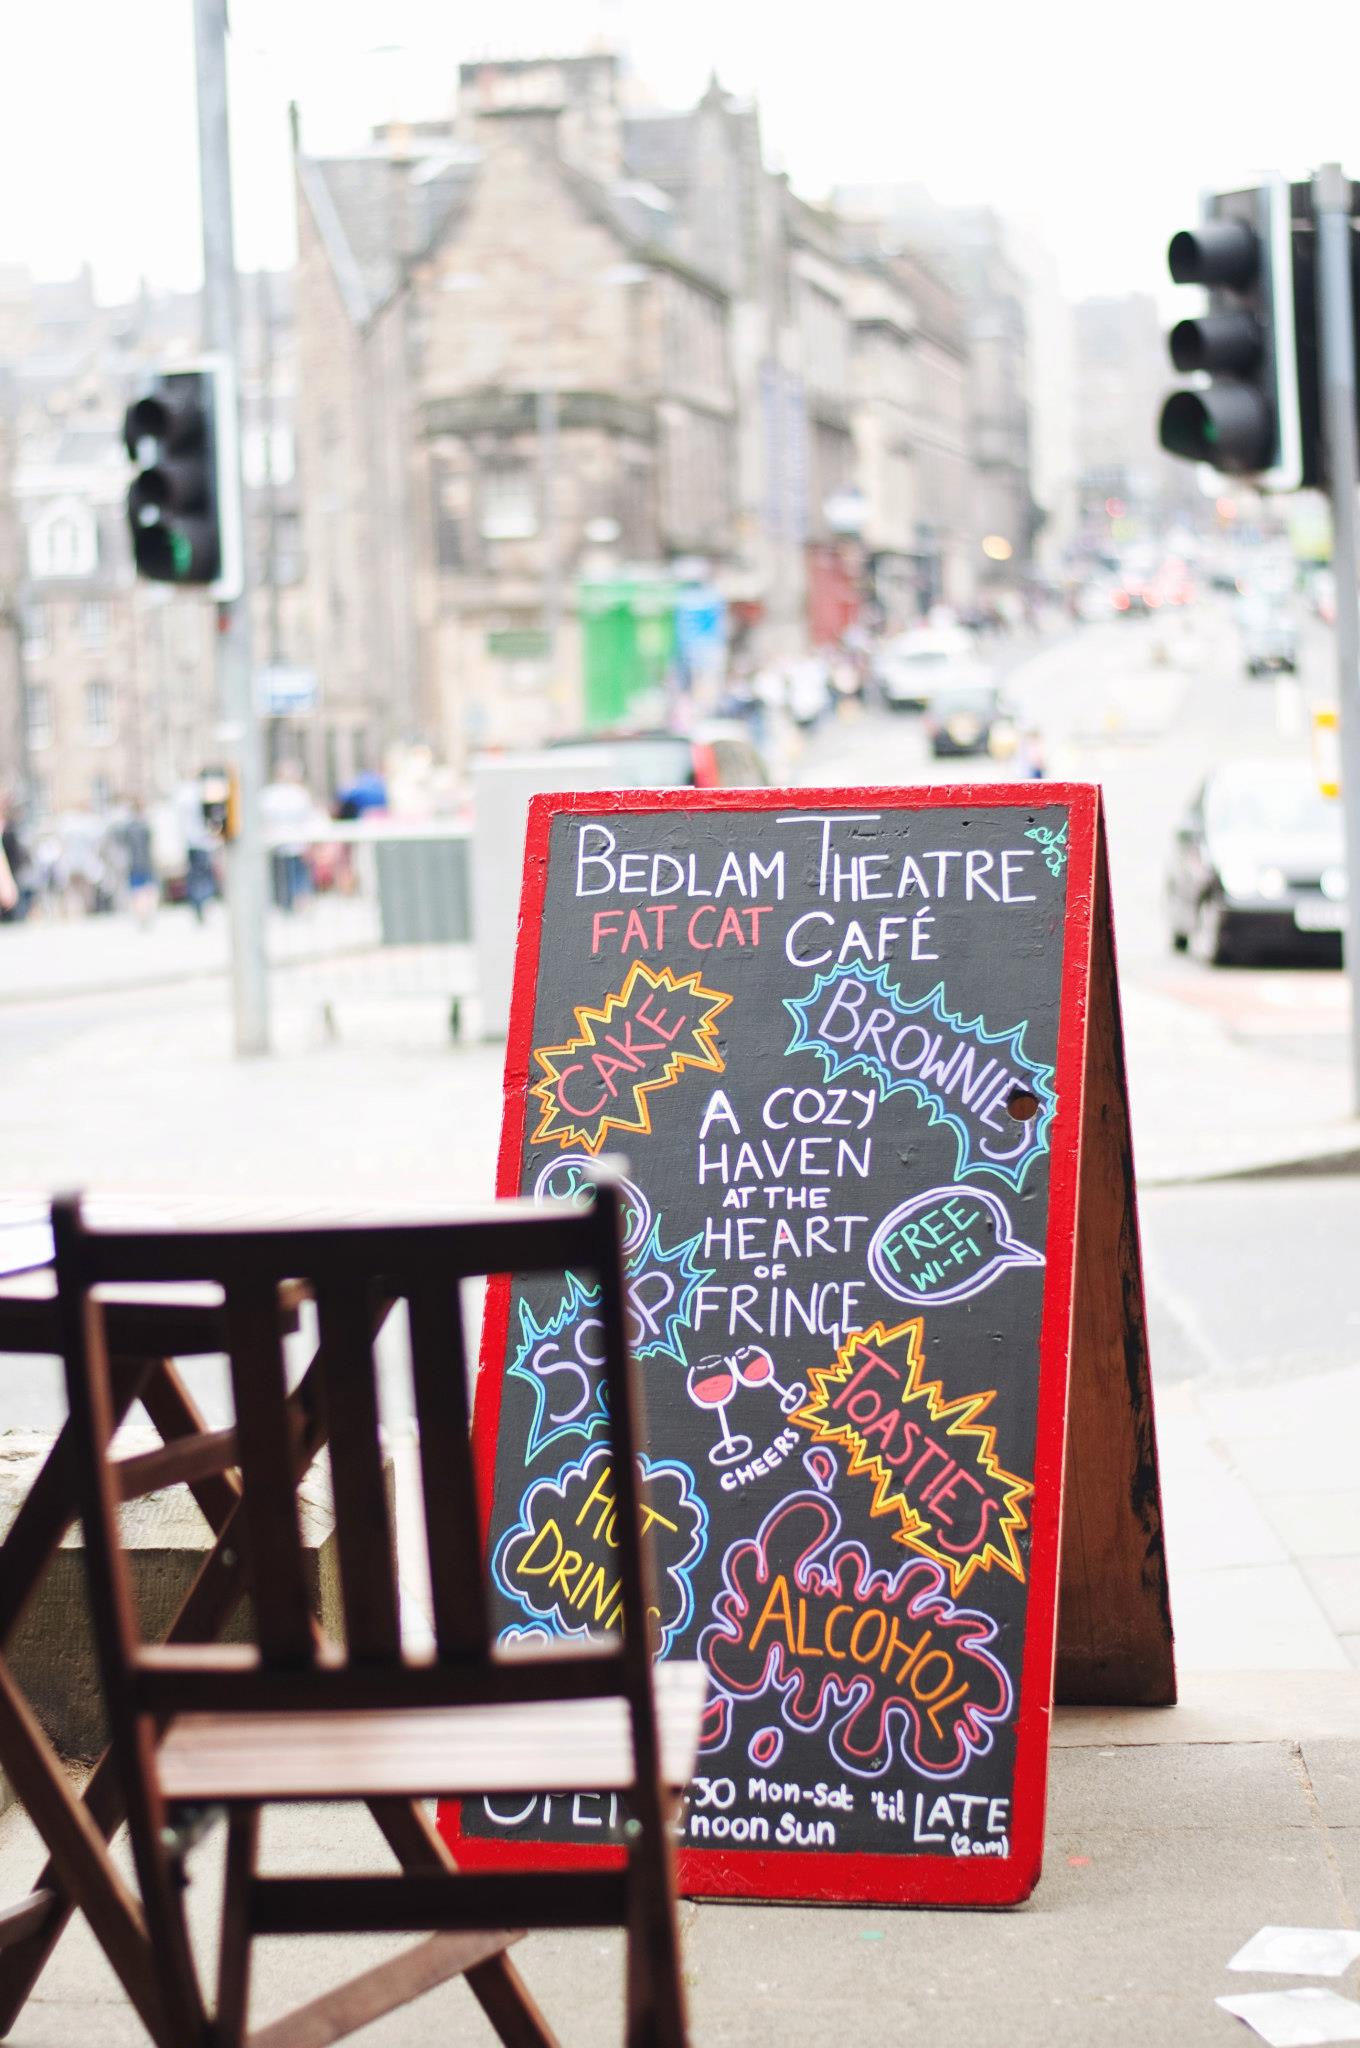 BEDLAM THEATRE
FAT CAT CAFÉ
CAKE
BROWNIES
A COZY
HAVEN
AT THE
HEART
OF
FRINGE
FREE
WI-FI
SOUP
CHEERS
TOASTIES
HOT
DRINKS
ALCOHOL
OPEN :30 Mon-Sat 'til LATE
noon Sun (2am)